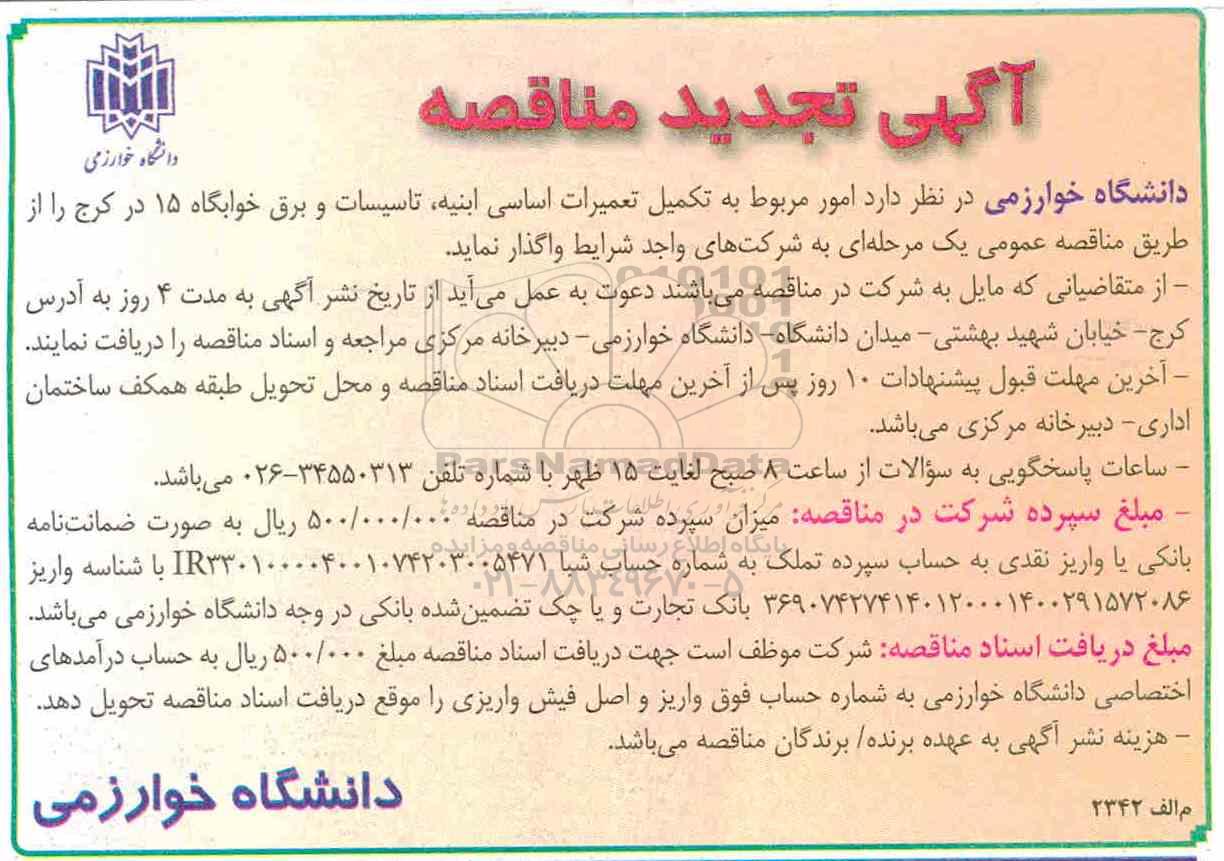 آگهی تجدید مناقصه
دانشگاه خوارزمی
دانشگاه خوارزمی در نظر دارد امور مربوط به تکمیل تعمیرات اساسی ابنیه، تاسیسات و برق خوابگاه ۱۵ در کرج را از
طریق مناقصه عمومی یک مرحله‌ای به شرکت‌های واجد شرایط واگذار نماید.
- از متقاضیانی که مایل به شرکت در مناقصه می‌باشند دعوت به عمل می‌آید از تاریخ نشر آگهی به مدت ۴ روز به آدرس
کرج- خیابان شهید بهشتی- میدان دانشگاه- دانشگاه خوارزمی- دبیرخانه مرکزی مراجعه و اسناد مناقصه را دریافت نمایند.
- آخرین مهلت قبول پیشنهادات ۱۰ روز پس از آخرین مهلت دریافت اسناد مناقصه و محل تحویل طبقه همکف ساختمان
اداری- دبیرخانه مرکزی می‌باشد.
- ساعات پاسخگویی به سؤالات از ساعت ۸ صبح لغایت ۱۵ ظهر با شماره تلفن ۳۴۵۵۰۳۱۳-۰۲۶ می‌باشد.
- مبلغ سپرده شرکت در مناقصه: میزان سپرده شرکت در مناقصه ۵۰۰/۰۰۰/۰۰۰ ریال به صورت ضمانت‌نامه
بانکی یا واریز نقدی به حساب سپرده تملک به شماره حساب شبا IR۳۳۰۱۰۰۰۰۴۰۰۱۰۷۴۲۰۳۰۰۵۴۷۱ با شناسه واریز
۳۶۹۰۷۴۲۷۴۱۴۰۱۲۰۰۰۱۴۰۰۲۹۱۵۷۲۰۸۶ بانک تجارت و یا چک تضمین‌شده بانکی در وجه دانشگاه خوارزمی می‌باشد.
مبلغ دریافت اسناد مناقصه: شرکت موظف است جهت دریافت اسناد مناقصه مبلغ ۵۰۰/۰۰۰ ریال به حساب درآمدهای
اختصاصی دانشگاه خوارزمی به شماره حساب فوق واریز و اصل فیش واریزی را موقع دریافت اسناد مناقصه تحویل دهد.
- هزینه نشر آگهی به عهده برنده/ برندگان مناقصه می‌باشد.
دانشگاه خوارزمی
م‌الف ۲۳۴۲
ParsNamadData
پایگاه اطلاع رسانی مناقصه و مزایده
۰۲۱-۸۸۳۴۹۶۷۰-۵